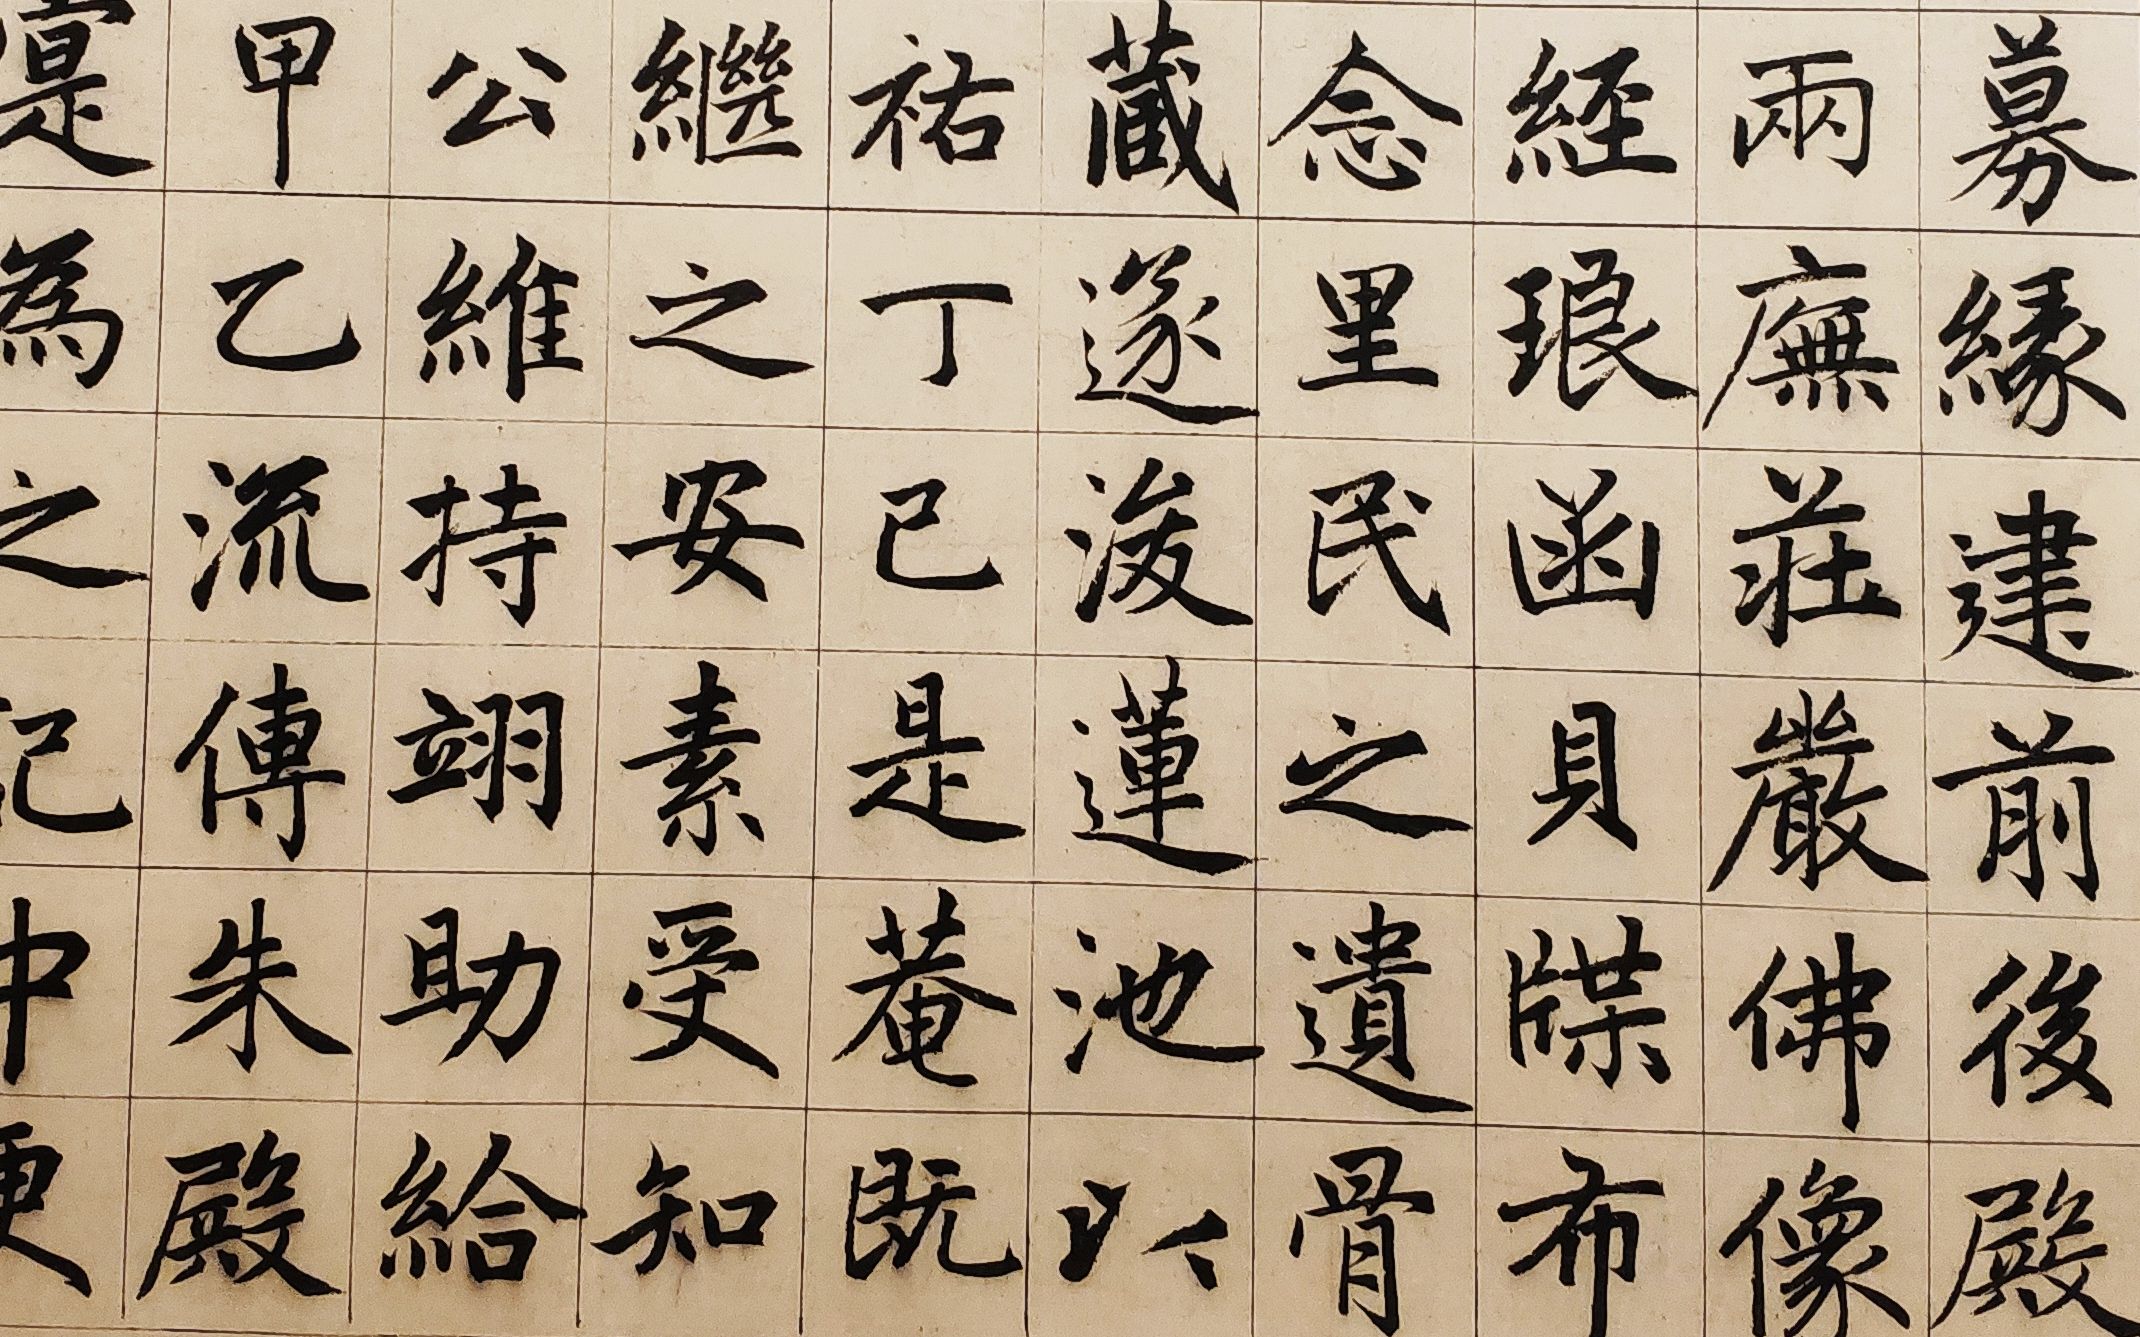 募緣建前後殿
兩廡莊嚴佛像
經琅函貝牒布
念里民之遺骨
蔵遂浚蓮池以
祐丁巳是菴既
繼之安素受知
公維持翊助給
甲乙流傳朱殿
寔為之記中更